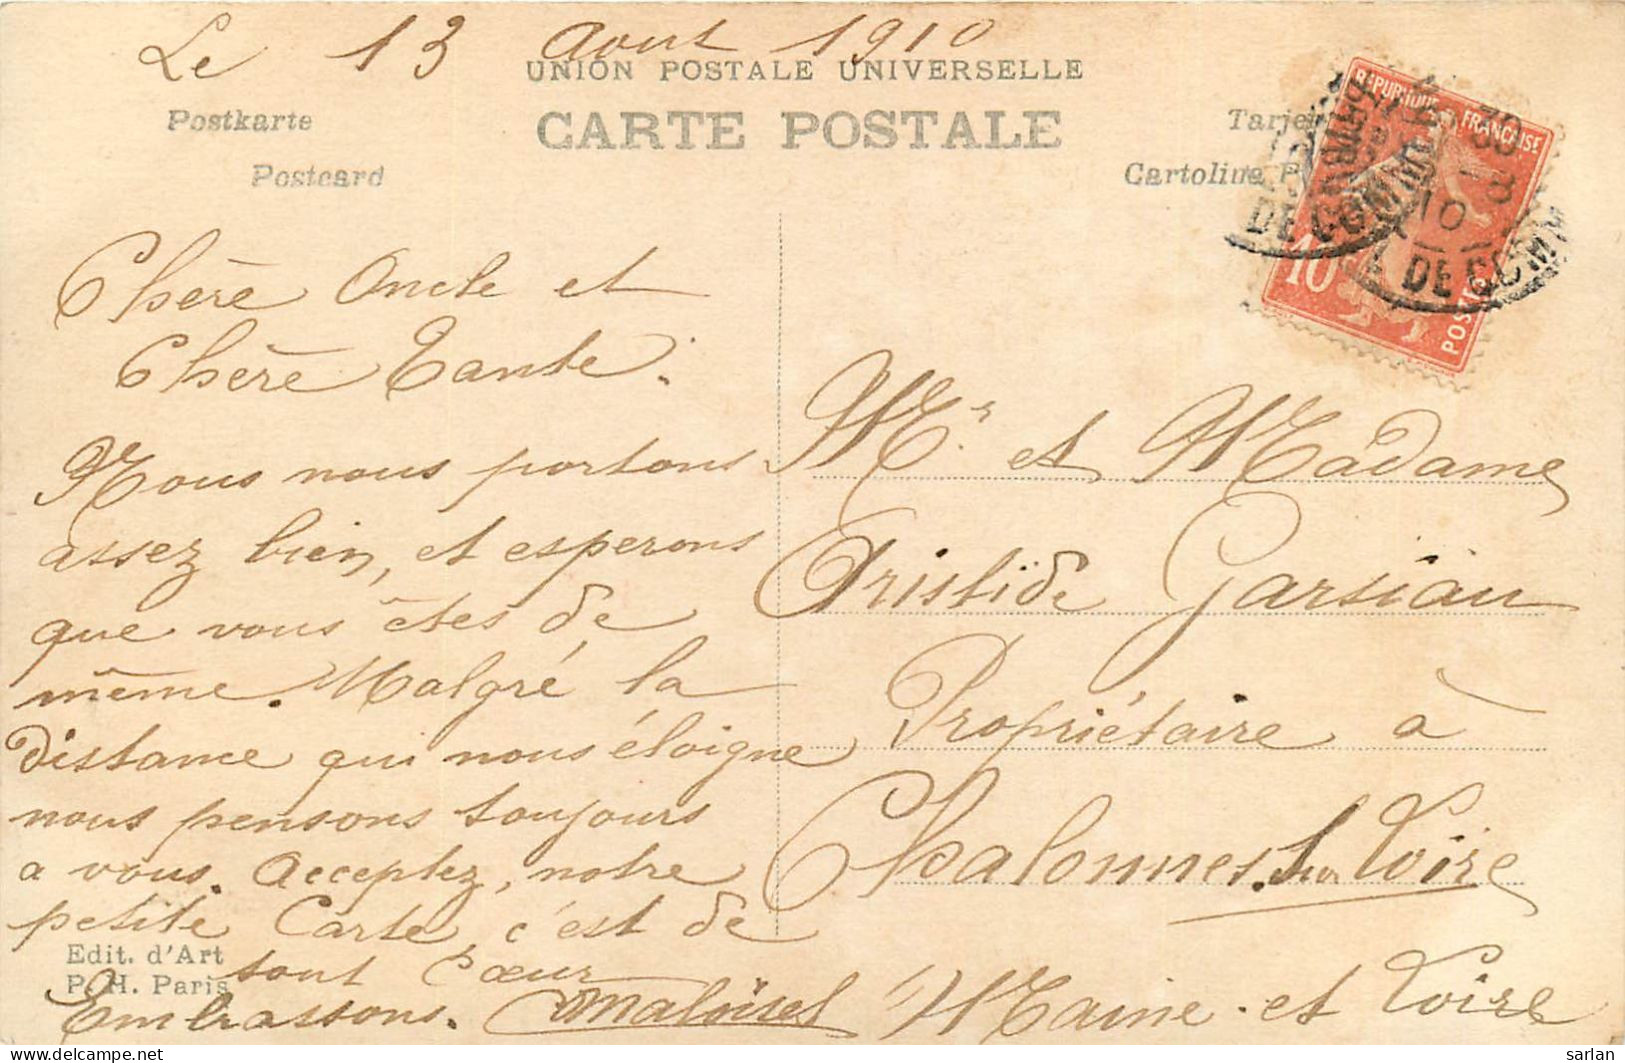 Le 13 Aout 1910
UNION POSTALE UNIVERSELLE
Postkarte
CARTE POSTALE
Postcard
Cartolina P
REPUBLIQUE FRANÇAISE
10
POSTES
Chère Oncle et
Chère Tante.
Nous nous portons
assez bien, et esperons
que vous êtes de
même. Malgré la
distance qui nous éloigne
nous pensons toujours
a vous. Acceptez, notre
petite Carte, c'est de
tout cœur
Embrassons.
Mr et Madame
Aristide Garsiau
Propriétaire à
Chalonnes. sur Loire
Maine-et Loire
Edit. d'Art
P. H. Paris
sarlan